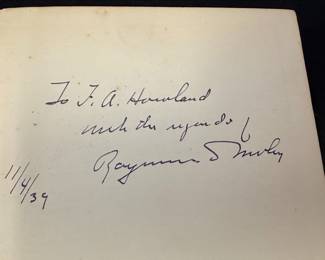 To F. A. Howland
with the regards of
Raymond
11/4/39